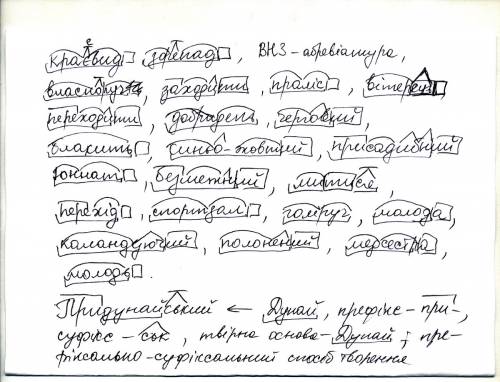 краєвид, зорепад, ВНЗ – абревіатура,
власноруч, заходити, праліс, вітерець,
переходити, добридень, черговий,
власить, синьо-жовтий, присадибний
юннат, безмежний, митися,
перехід, спортзал, голіруч, молода,
командуючий, полонений, медсестра,
молодь.
Придунайський ← Дунай, префікс – при-,
суфікс – ськ, твірна основа – Дунай; пре-
фіксально-суфіксальний спосіб творення